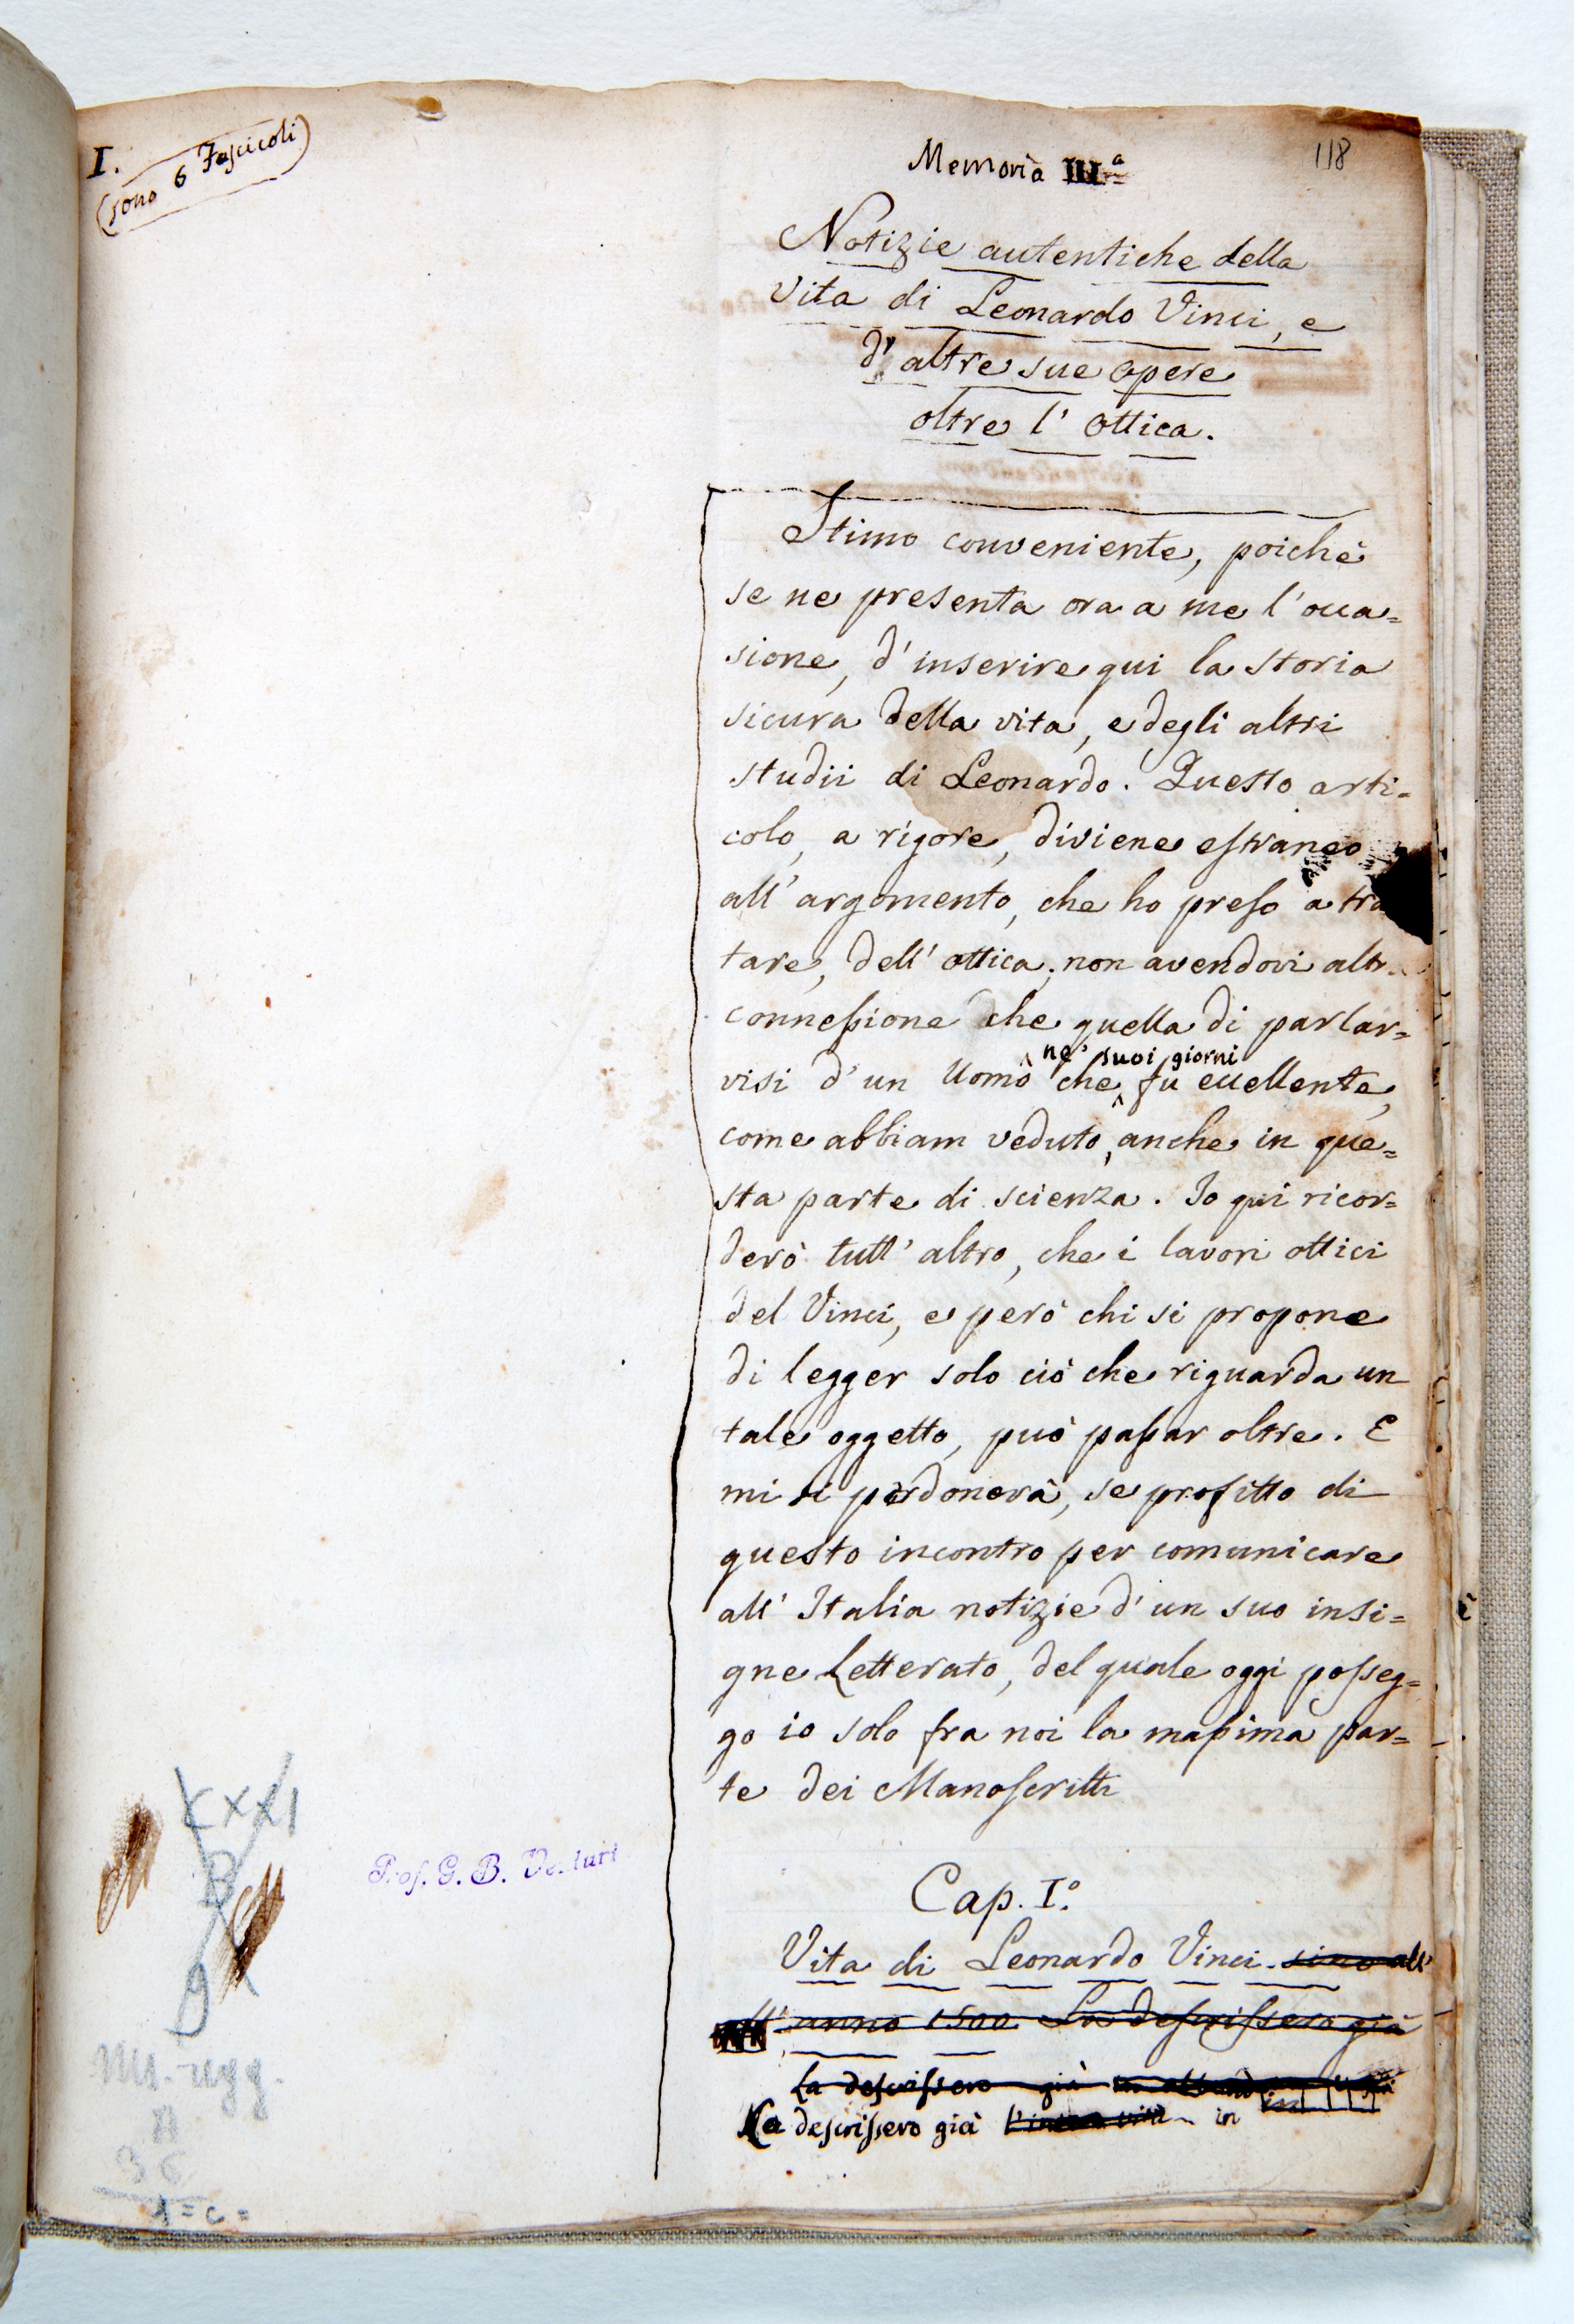 I.
(sono 6 Fascicoli)
118
Memoria III.ª
Notizie autentiche della
vita di Leonardo Vinci, e
d' altre sue opere
oltre l' ottica.
Stimo conveniente, poichè
se ne presenta ora a me l'occa=
sione, d'inserire qui la storia
sicura della vita, e degli altri
studii di Leonardo. Questo arti=
colo, a rigore, diviene estraneo
all'argomento, che ho preso a tra
tare, dell'ottica; non avendovi altr
connessione che quella di parlar=
ne' suoi giorni
visi d'un Uomo che fu eccellente,
come abbiam veduto, anche in que=
sta parte di scienza. Io qui ricor=
derò tutt'altro, che i lavori ottici
del Vinci, e però chi si propone
di legger solo ciò che riguarda un
tale oggetto, può passar oltre. E
mi si perdonerà, se profitto di
questo incontro per comunicare
all'Italia notizie d'un suo insi=
gne Letterato, del quale oggi posseg=
go io solo fra noi la massima par=
te dei Manoscritti
Cap. I.º
Vita di Leonardo Vinci. sino all'
anno 1500. La descrissero già
La descrissero già
La descrissero già in
Prof. G. B. Venturi
CXXI
B
9
1=c=